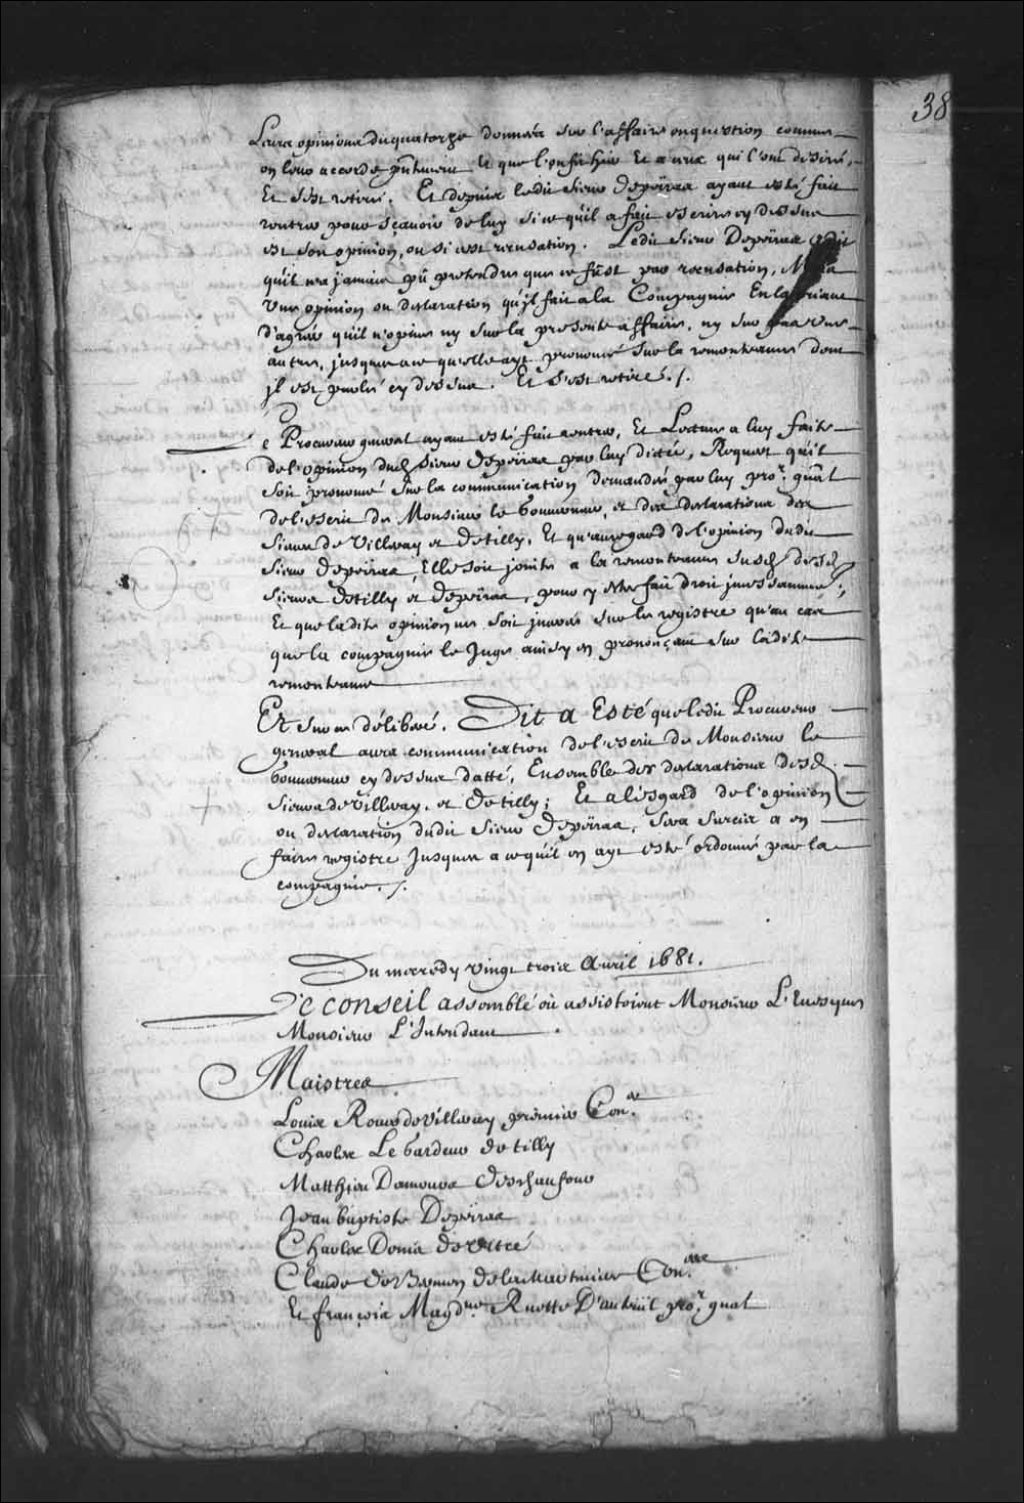 38
Leurs opinions du quatorze données sur l'affaire en question comme
on leur accorde pntement et que l'on fit hier et a ceux qui l'ont desiré,
Et s'est retiré. Et depuis ledit sieur Depeiras ayant esté fait
rentrer pour sçavoir de luy si ce qu'il a fait escrire cy dessus
est son opinion, ou si c'est recusation. Ledit sieur Depeiras a dit
qu'il n'a jamais pû pretendre que ce fust par recusation, Mais
une opinion ou declaration qu'jl fait a la Compagnie En la priant
d'agréer qu'il n'opine ny sur la presente affaire, ny sur pas une
autre, jusques a ce qu'elle ayt prononcé sur la remontrance dont
jl est parlé cy dessus. Et s'est retiré ./.
Le Procureur general ayant esté fait rentrer, Et Lecture a luy faite
de l'opinion dud. sieur Depeiras par luy dictée, Requiert qu'il
soit prononcé sur la communication demandée par luy pror. gnāl
de l'escrit de Monsieur le Gouverneur, et des declarations des
sieurs de Villeray et de Tilly, Et qu'au regard de l'opinion dudit
sieur Depeiras, Elle soit jointe a la remontrance susd. desd.
sieurs de Tilly et Depeiras, pour y estre fait droit
Et que ladite opinion ne soit jnserée sur le registre qu'au cas
que la compagnie le juge ainsy en prononçant sur ladite
remontrance
Et sur ce délibéré. Dit a Esté que ledit Procureur
general aura communication de l'escrit de Monsieur le
Gouverneur cy dessus datté, Ensemble des declarations desd.
sieurs de Villeray, et de Tilly; Et a l'esgard de l'opinion
ou declaration dudit sieur Depeiras, sera surcis a en
faire registre jusques a ce qu'il en ayt esté ordonné par la
compagnie ./.
Du mercredy vingt trois Avril 1681.
Le conseil assemblé où assistoient Monsieur L'Evesque
Monsieur L'Intendant
Maistres
Louis Rouer de Villeray premier Conr.
Charles Le Gardeur de Tilly
Matthieu Damours Deschaufour
Jean baptiste Depeiras
Charles Denis de Vitré
Claude de Bermen de la Martiniere Coners.
Et françois Magdne. Ruette D'auteüil pror. gnal